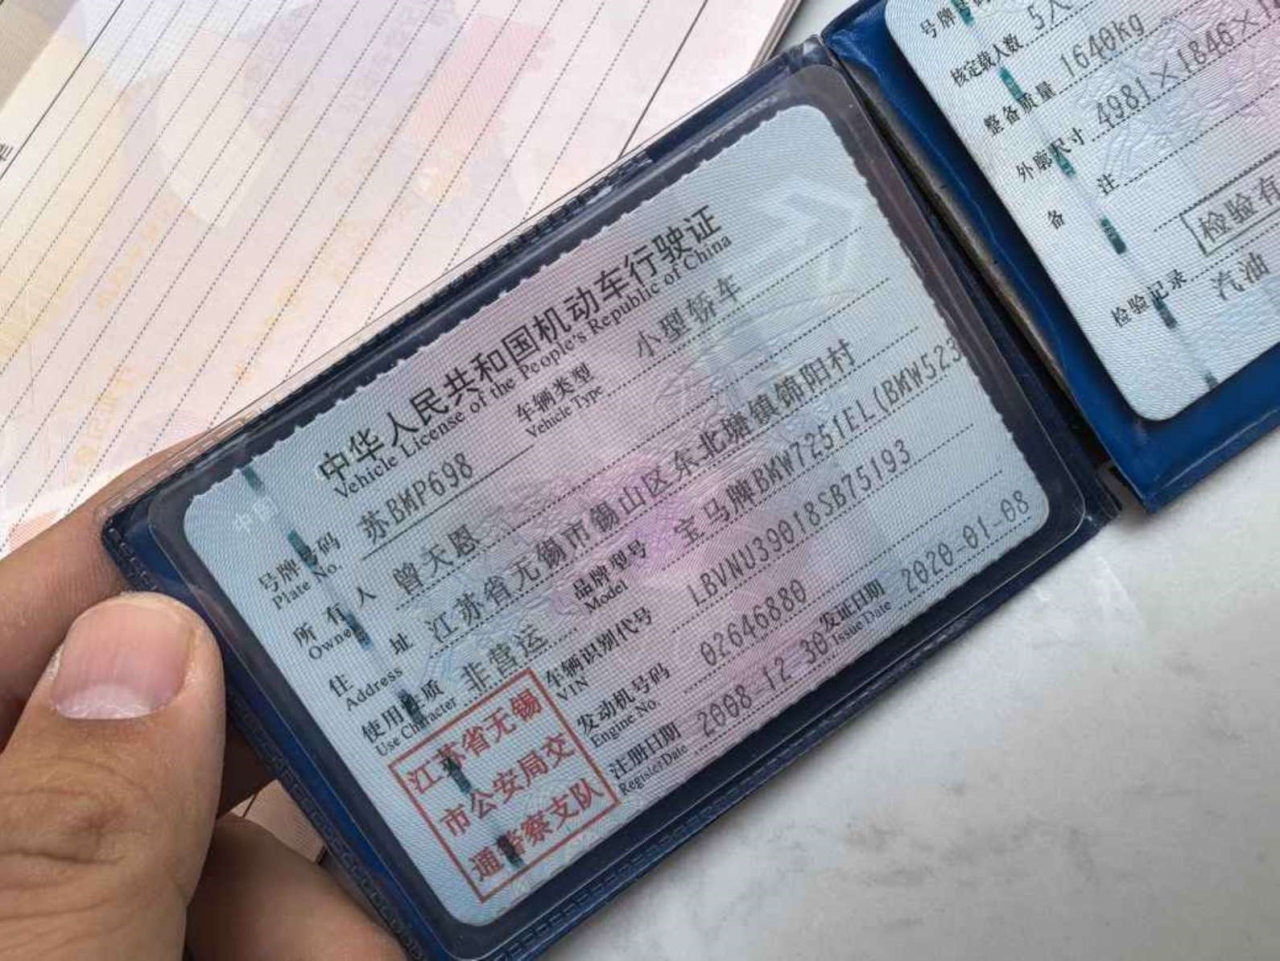 中华人民共和国机动车行驶证
Vehicle License of the People's Republic of China
号牌号码 苏BMP698 车辆类型 小型轿车
Plate No. Vehicle Type
所有人 曾天恩
Owner
住址 江苏省无锡市锡山区东北塘镇锦阳村
Address
使用性质 非营运 品牌型号 宝马牌BMW7251EL(BMW523
Use Character Model
车辆识别代号 LBVNU39018SB75193
VIN
发动机号码 02646880
Engine No.
注册日期 2008-12-30 发证日期 2020-01-08
Register Date Issue Date
江苏省无锡
市公安局交
通警察支队
号牌号码
核定载人数 5人
整备质量 1640kg
外廓尺寸 4981×1846×1
备注
检验有
检验记录 汽油